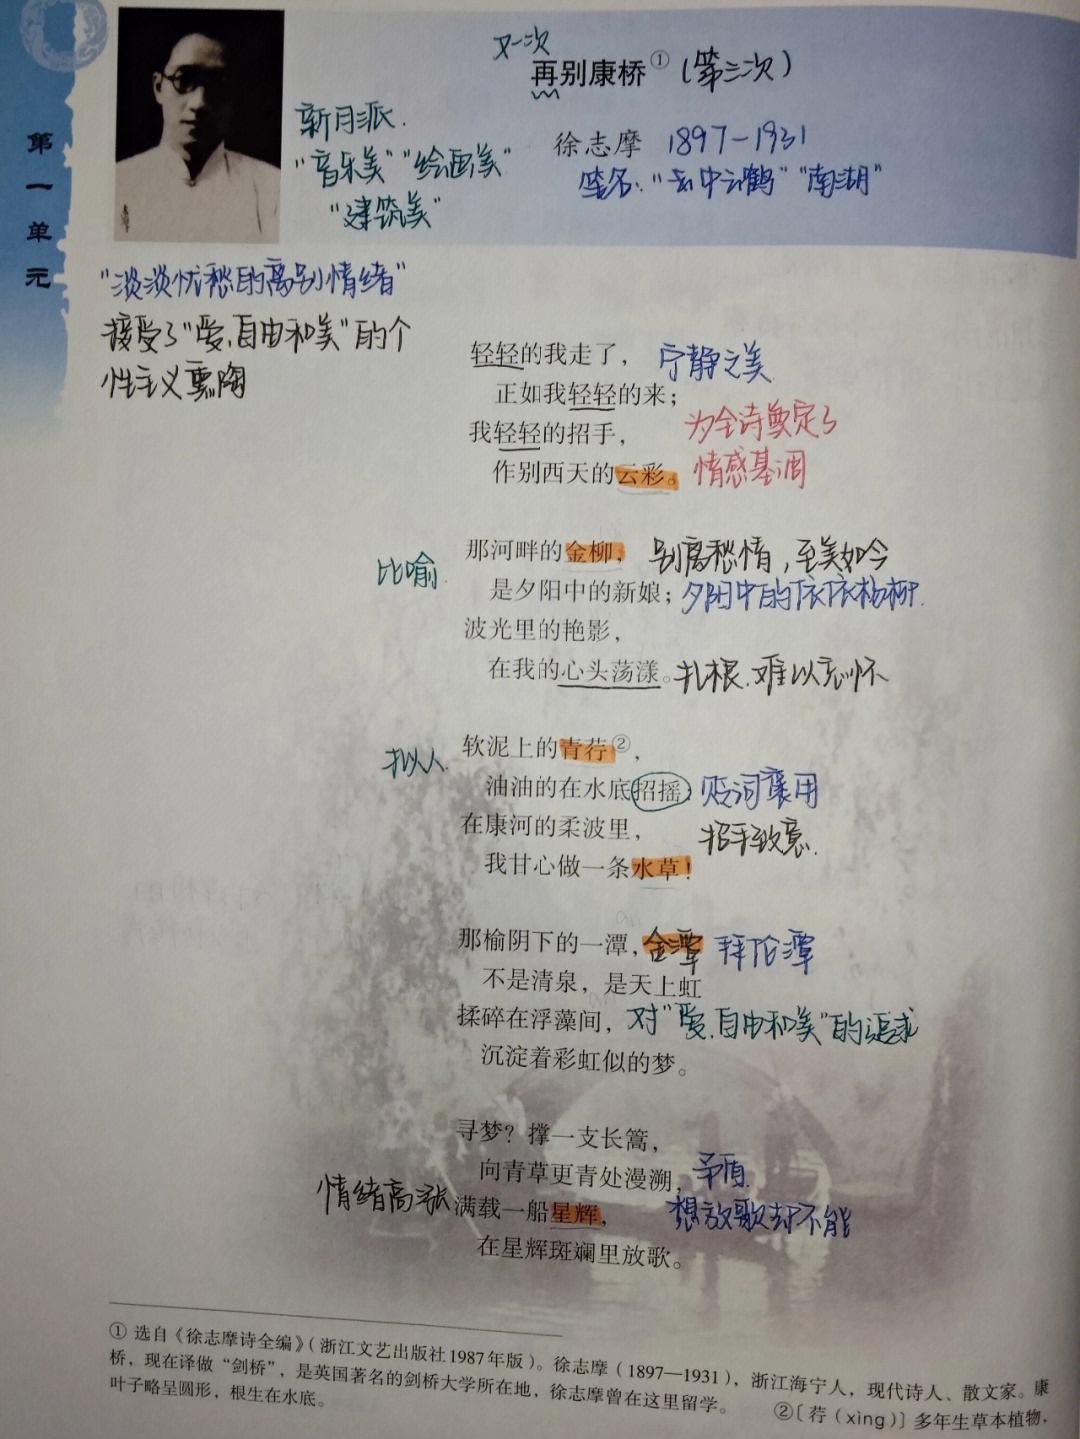 第一单元
又一次
再别康桥①(第三次)
新月派.
"音乐美""绘画美"
"建筑美"
徐志摩 1897-1931
签名:"云中鹤""南湖"
"淡淡忧愁的离别情绪"
接受了"爱,自由和美"的个
性主义熏陶
轻轻的我走了, 宁静之美
正如我轻轻的来;
我轻轻的招手, 为全诗奠定了
作别西天的云彩。 情感基调
那河畔的金柳, 别离愁情,至美如今
比喻.
是夕阳中的新娘;夕阳中的依依杨柳.
波光里的艳影,
在我的心头荡漾。扎根.难以忘怀
软泥上的青荇②,
拟人.
油油的在水底招摇; 贬词褒用
在康河的柔波里, 招手致意.
我甘心做一条水草!
那榆阴下的一潭,金潭 拜伦潭
不是清泉,是天上虹
揉碎在浮藻间,对"爱.自由和美"的追求
沉淀着彩虹似的梦。
寻梦?撑一支长篙,
向青草更青处漫溯, 矛盾.
情绪高涨 满载一船星辉, 想放歌却不能
在星辉斑斓里放歌。
① 选自《徐志摩诗全编》(浙江文艺出版社1987年版)。徐志摩(1897—1931),浙江海宁人,现代诗人、散文家。康
桥,现在译做“剑桥”,是英国著名的剑桥大学所在地,徐志摩曾在这里留学。 ②〔荇(xìng)〕多年生草本植物,
叶子略呈圆形,根生在水底。